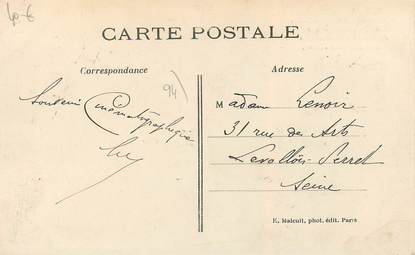 40 €
CARTE POSTALE
Correspondance
Adresse
94)
Souvenir Cinématographique
Madame Lenoir
31 rue des Arts
Levallois-Perret
Seine
E. Malcuit, phot. édit. Paris